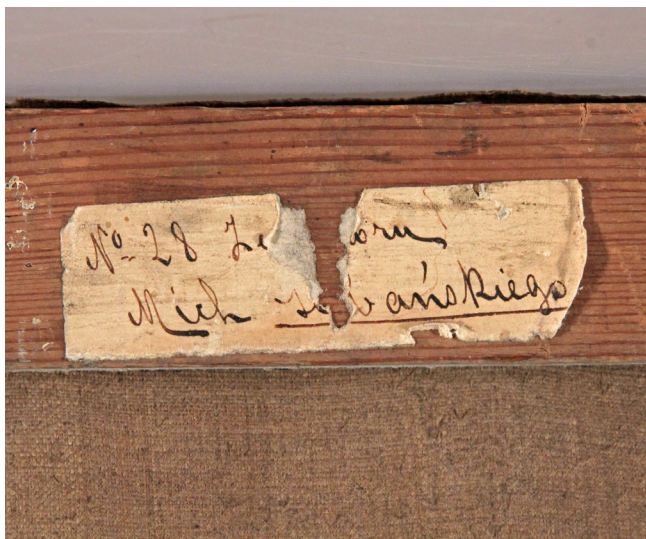 No 28 Ze oru
Mich vańskiego